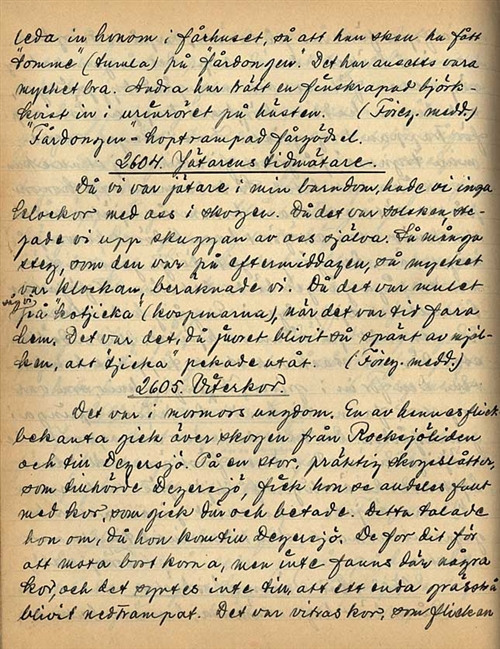 leda in honom i fårhuset, så att han skau ha fått
"tomme" (tumla) på "fårdongen". Det har ansetts vara
mycket bra. Andra har trätt en finskrapad björk-
kvist in i urinröret på hästen. (Föreg. medd.)
"Fårdongen" = hoptrampad fårgödsel.
2604. Jätarens tidmätare.
Då vi var jätare i min barndom, hade vi inga
klockor med oss i skogen. Då det var solsken, ste-
gade vi upp skuggan av oss själva. Så många
steg, som den var på eftermiddagen, så mycket
var klockan, beräknade vi. Då det var mulet
såg vi
på "kotjicka" (kospenarna), när det var tid fara
hem. Det var det, då juret blivit så spänt av mjöl-
ken, att "tjicka" pekade utåt. (Föreg. medd.)
2605. Viterkor.
Det var i mormors ungdom. En av hennes flick-
bekanta gick över skogen från Rocksjöliden
och till Degersjö. På en stor, präktig skogsslåtter,
som tillhörde Degersjö, fick hon se alldeles fullt
med kor, som gick där och betade. Detta talade
hon om, då hon kom till Degersjö. De for dit för
att mota bort korna, men inte fanns där några
kor, och det syntes inte till, att ett enda grässtrå
blivit nedtrampat. Det var vitras kor, som flickan